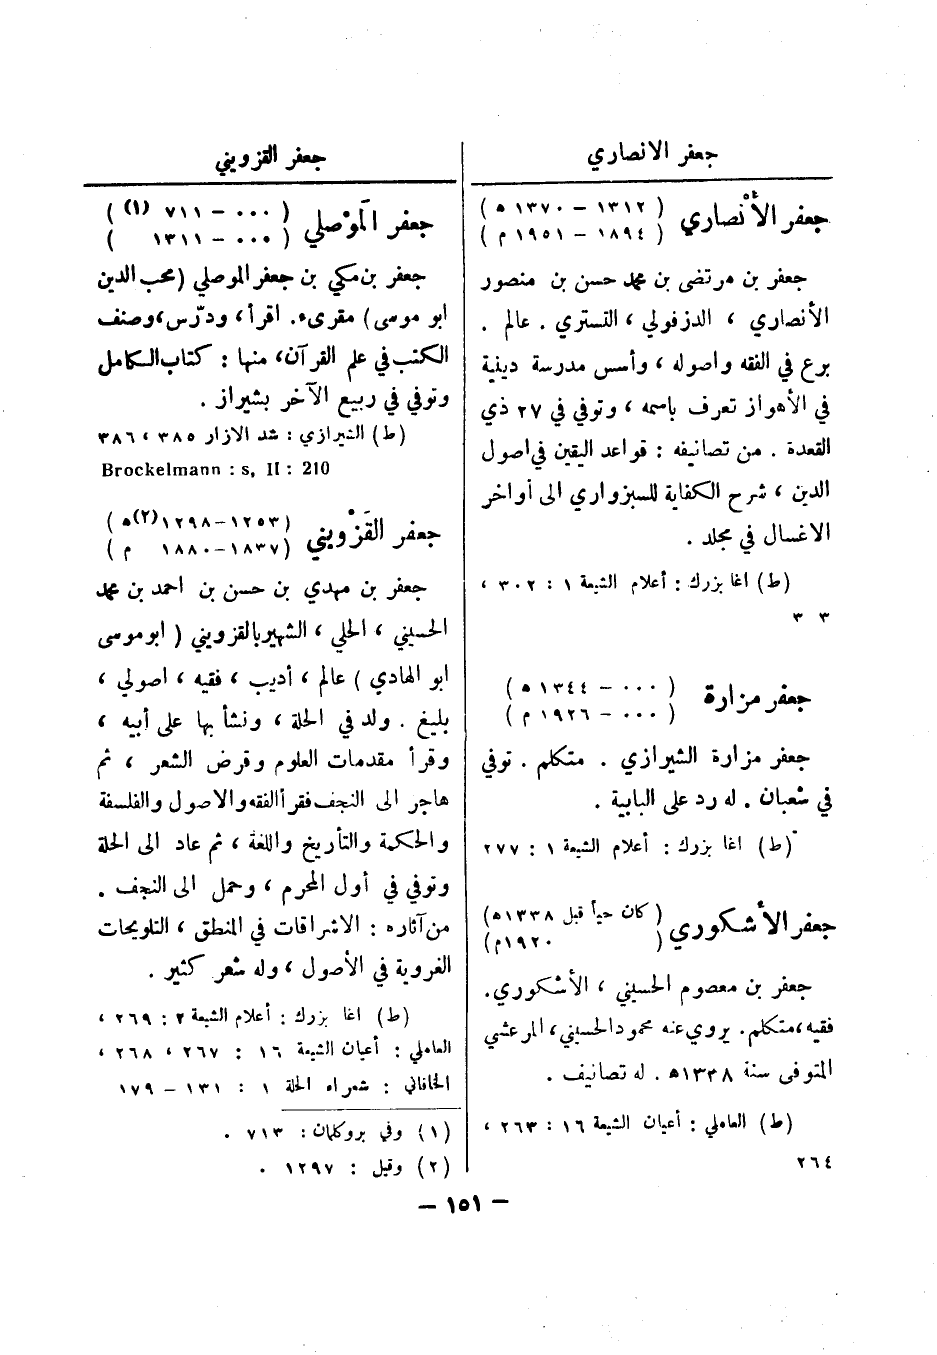 جعفر الانصاري
جعفر الأنْصاري ( ١٣١٢ – ١٣٧٠ ه )
( ١٨٩٤ – ١٩٥١ م )
جعفر بن مرتضى بن محمد حسن بن منصور
الأنصاري ، الدزفولي ، التستري . عالم .
برع في الفقه واصوله ، وأسس مدرسة دينية
في الأهواز تعرف باسمه ، وتوفي في ٢٧ ذي
القعدة . من تصانيفه : قواعد اليقين في اصول
الدين ، شرح الكفاية للسبزواري الى أواخر
الاغسال في مجلد .
(ط) اغا بزرك : أعلام الشيعة ١ : ٣٠٢ ،
٣٠٣
جعفر مزارة ( ٠٠٠ – ١٣٤٤ ه )
( ٠٠٠ – ١٩٢٦ م )
جعفر مزارة الشيرازي . متكلم . توفي
في شعبان . له رد على البابية .
(ط) اغا بزرك : أعلام الشيعة ١ : ٢٧٧
جعفر الأشكوري ( كان حياً قبل ١٣٣٨ه)
( ١٩٢٠م)
جعفر بن معصوم الحسيني ، الأشكوري.
فقيه، متكلم. يروي عنه محمود الحسيني، المرعشي
المتوفى سنة ١٣٣٨ه . له تصانيف .
(ط) العاملي : أعيان الشيعة ١٦ : ٢٦٣ ،
٢٦٤
جعفر القزويني
جعفر المَوْصلي ( ٠٠٠ – ٧١١ (١) )
( ٠٠٠ – ١٣١١ )
جعفر بن مكي بن جعفر الموصلي (محب الدين
ابو موسى) مقرىء. اقرأ ، ودرّس، وصنف
الكتب في علم القرآن، منها : كتاب الكامل
وتوفي في ربيع الآخر بشيراز .
(ط) الشيرازي : شد الازار ٣٨٥ ، ٣٨٦
Brockelmann : s, II : 210
جعفر القَزْويني (١٢٥٣–١٢٩٨(٢)ه )
(١٨٣٧–١٨٨٠ م )
جعفر بن مهدي بن حسن بن احمد بن محمد
الحسيني ، الحلي ، الشهير بالقزويني ( ابو موسى
ابو الهادي ) عالم ، أديب ، فقيه ، اصولي ،
بليغ . ولد في الحلة ، ونشأ بها على أبيه ،
وقرأ مقدمات العلوم وقرض الشعر ، ثم
هاجر الى النجف فقرأ الفقه والاصول والفلسفة
والحكمة والتأريخ واللغة ، ثم عاد الى الحلة
وتوفي في أول المحرم ، وحمل الى النجف .
من آثاره : الاشراقات في المنطق ، التلويحات
الغروية في الأصول ، وله شعر كثير .
(ط) اغا بزرك : أعلام الشيعة ٢ : ٢٦٩ ،
العاملي : أعيان الشيعة ١٦ : ٢٦٧ ، ٢٦٨ ،
الخاقاني : شعراء الحلة ١ : ١٣١ – ١٧٩
(١) وفي بروكلمان : ٧١٣ .
(٢) وقيل : ١٢٩٧ .
– ١٥١ –